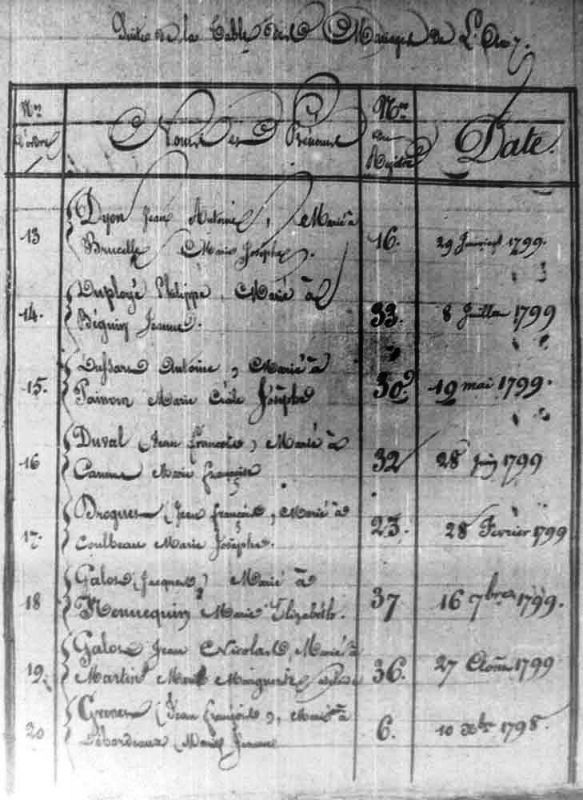 Suite de la Table des Mariages de L'An 7.
Nos d'ordre Noms et Prénoms Nos du Registre Date.
Dyon Jean Antoine, Marié à
13 Brucelle Marie Josephe. 16. 29 Janvier 1799.
Duployé Philippe, Marié à
14. Béguin Jeanne. 33. 8 Juillet 1799
Antoine, Marié à
15. Marie Cécile Josephe 30. 19 mai 1799.
Duval (Jean François, Marié à
16 Marie Françoise 32 28 Juin 1799
(Jean François, Marié à
17. Coulbeau Marie Josephe. 23. 28 Février 1799
Galos (Jacques) Marié à
18 Hennequin Marie Elizabeth. 37 16 7bre 1799.
Galos Jean Nicolas Marié à
19. Martin Marie Marguerite 36. 27 Août 1799
(Jean François), Marié à
20 Debordeaux Marie Jeanne 6. 10 Xbre 1798.